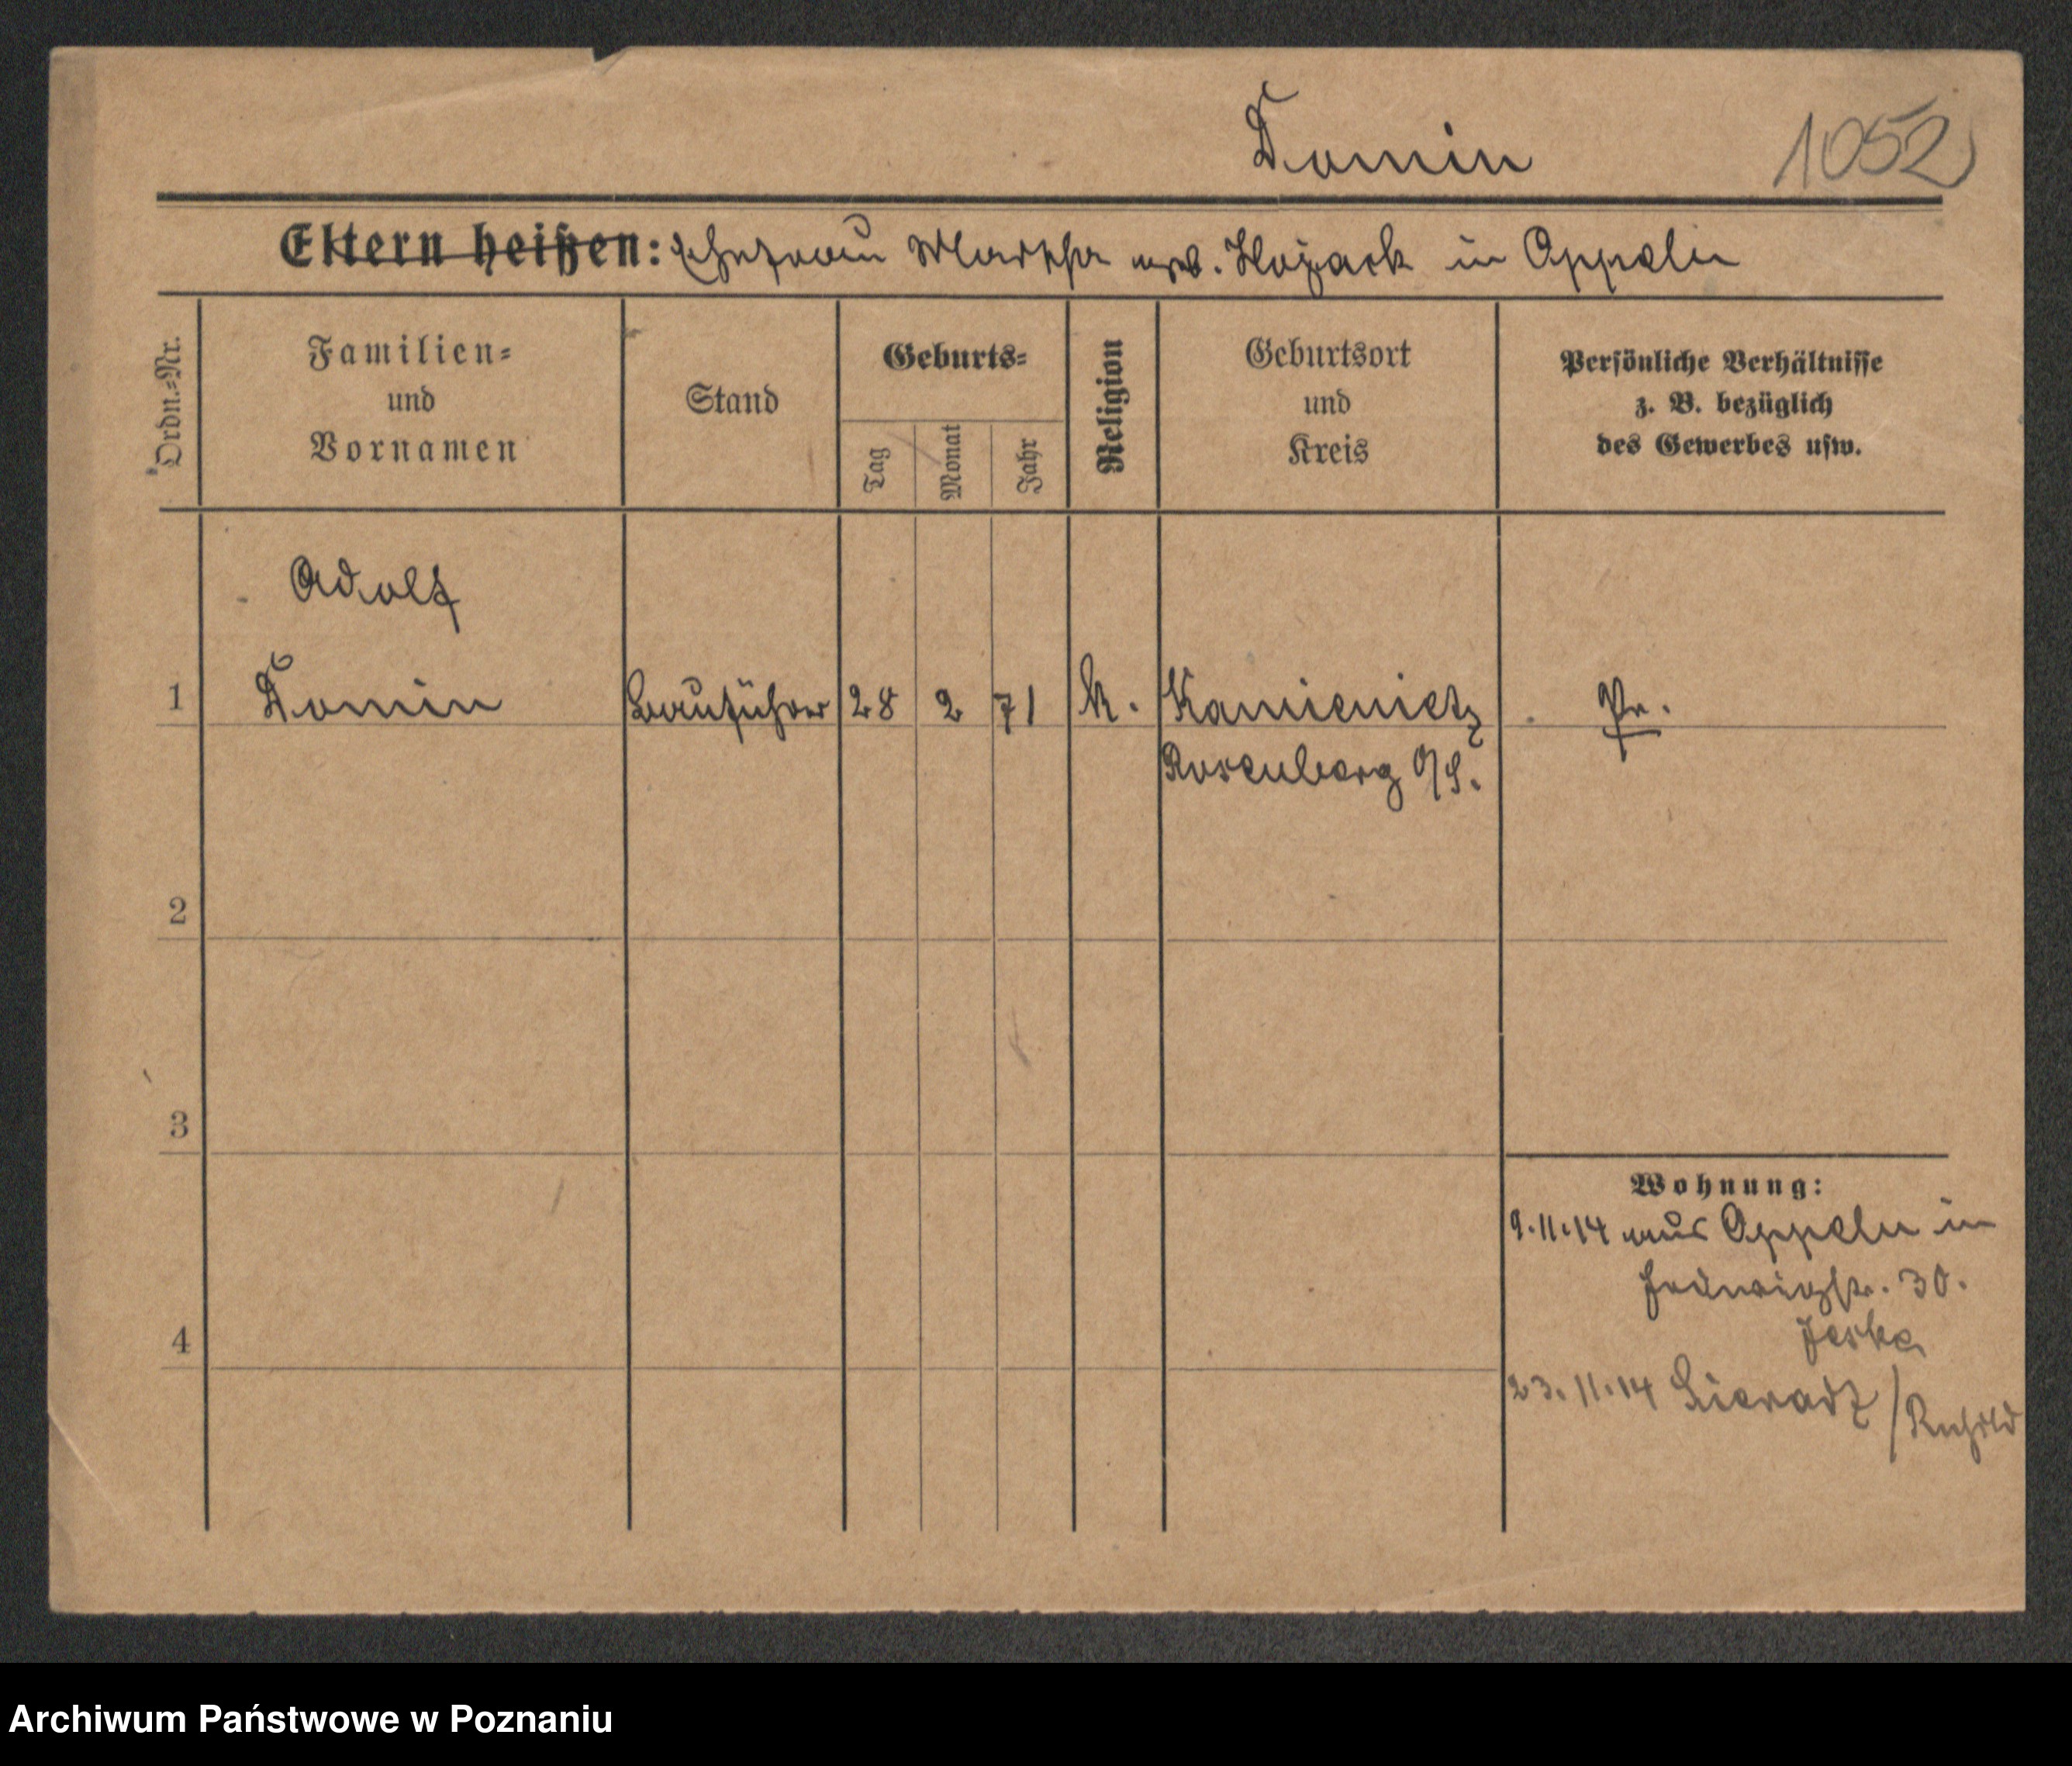 Domin 1052
Eltern heißen: Ehefrau Martha geb. Kozack in Oppeln
Ordn.=Nr.
Familien=
und
Vornamen
Stand
Geburts=
Tag
Monat
Jahr
Religion
Geburtsort
und
Kreis
Persönliche Verhältnisse
z. B. bezüglich
des Gewerbes usw.
Adolf
1 Domin Bauführer 28 2 71 k. Kamienietz Pr.
Rosenberg O/S.
2
3
4
Wohnung:
9.11.14 aus Oppeln in
Hedwigstr. 30.
Jeske
23.11.14 Sieradz /
Archiwum Państwowe w Poznaniu